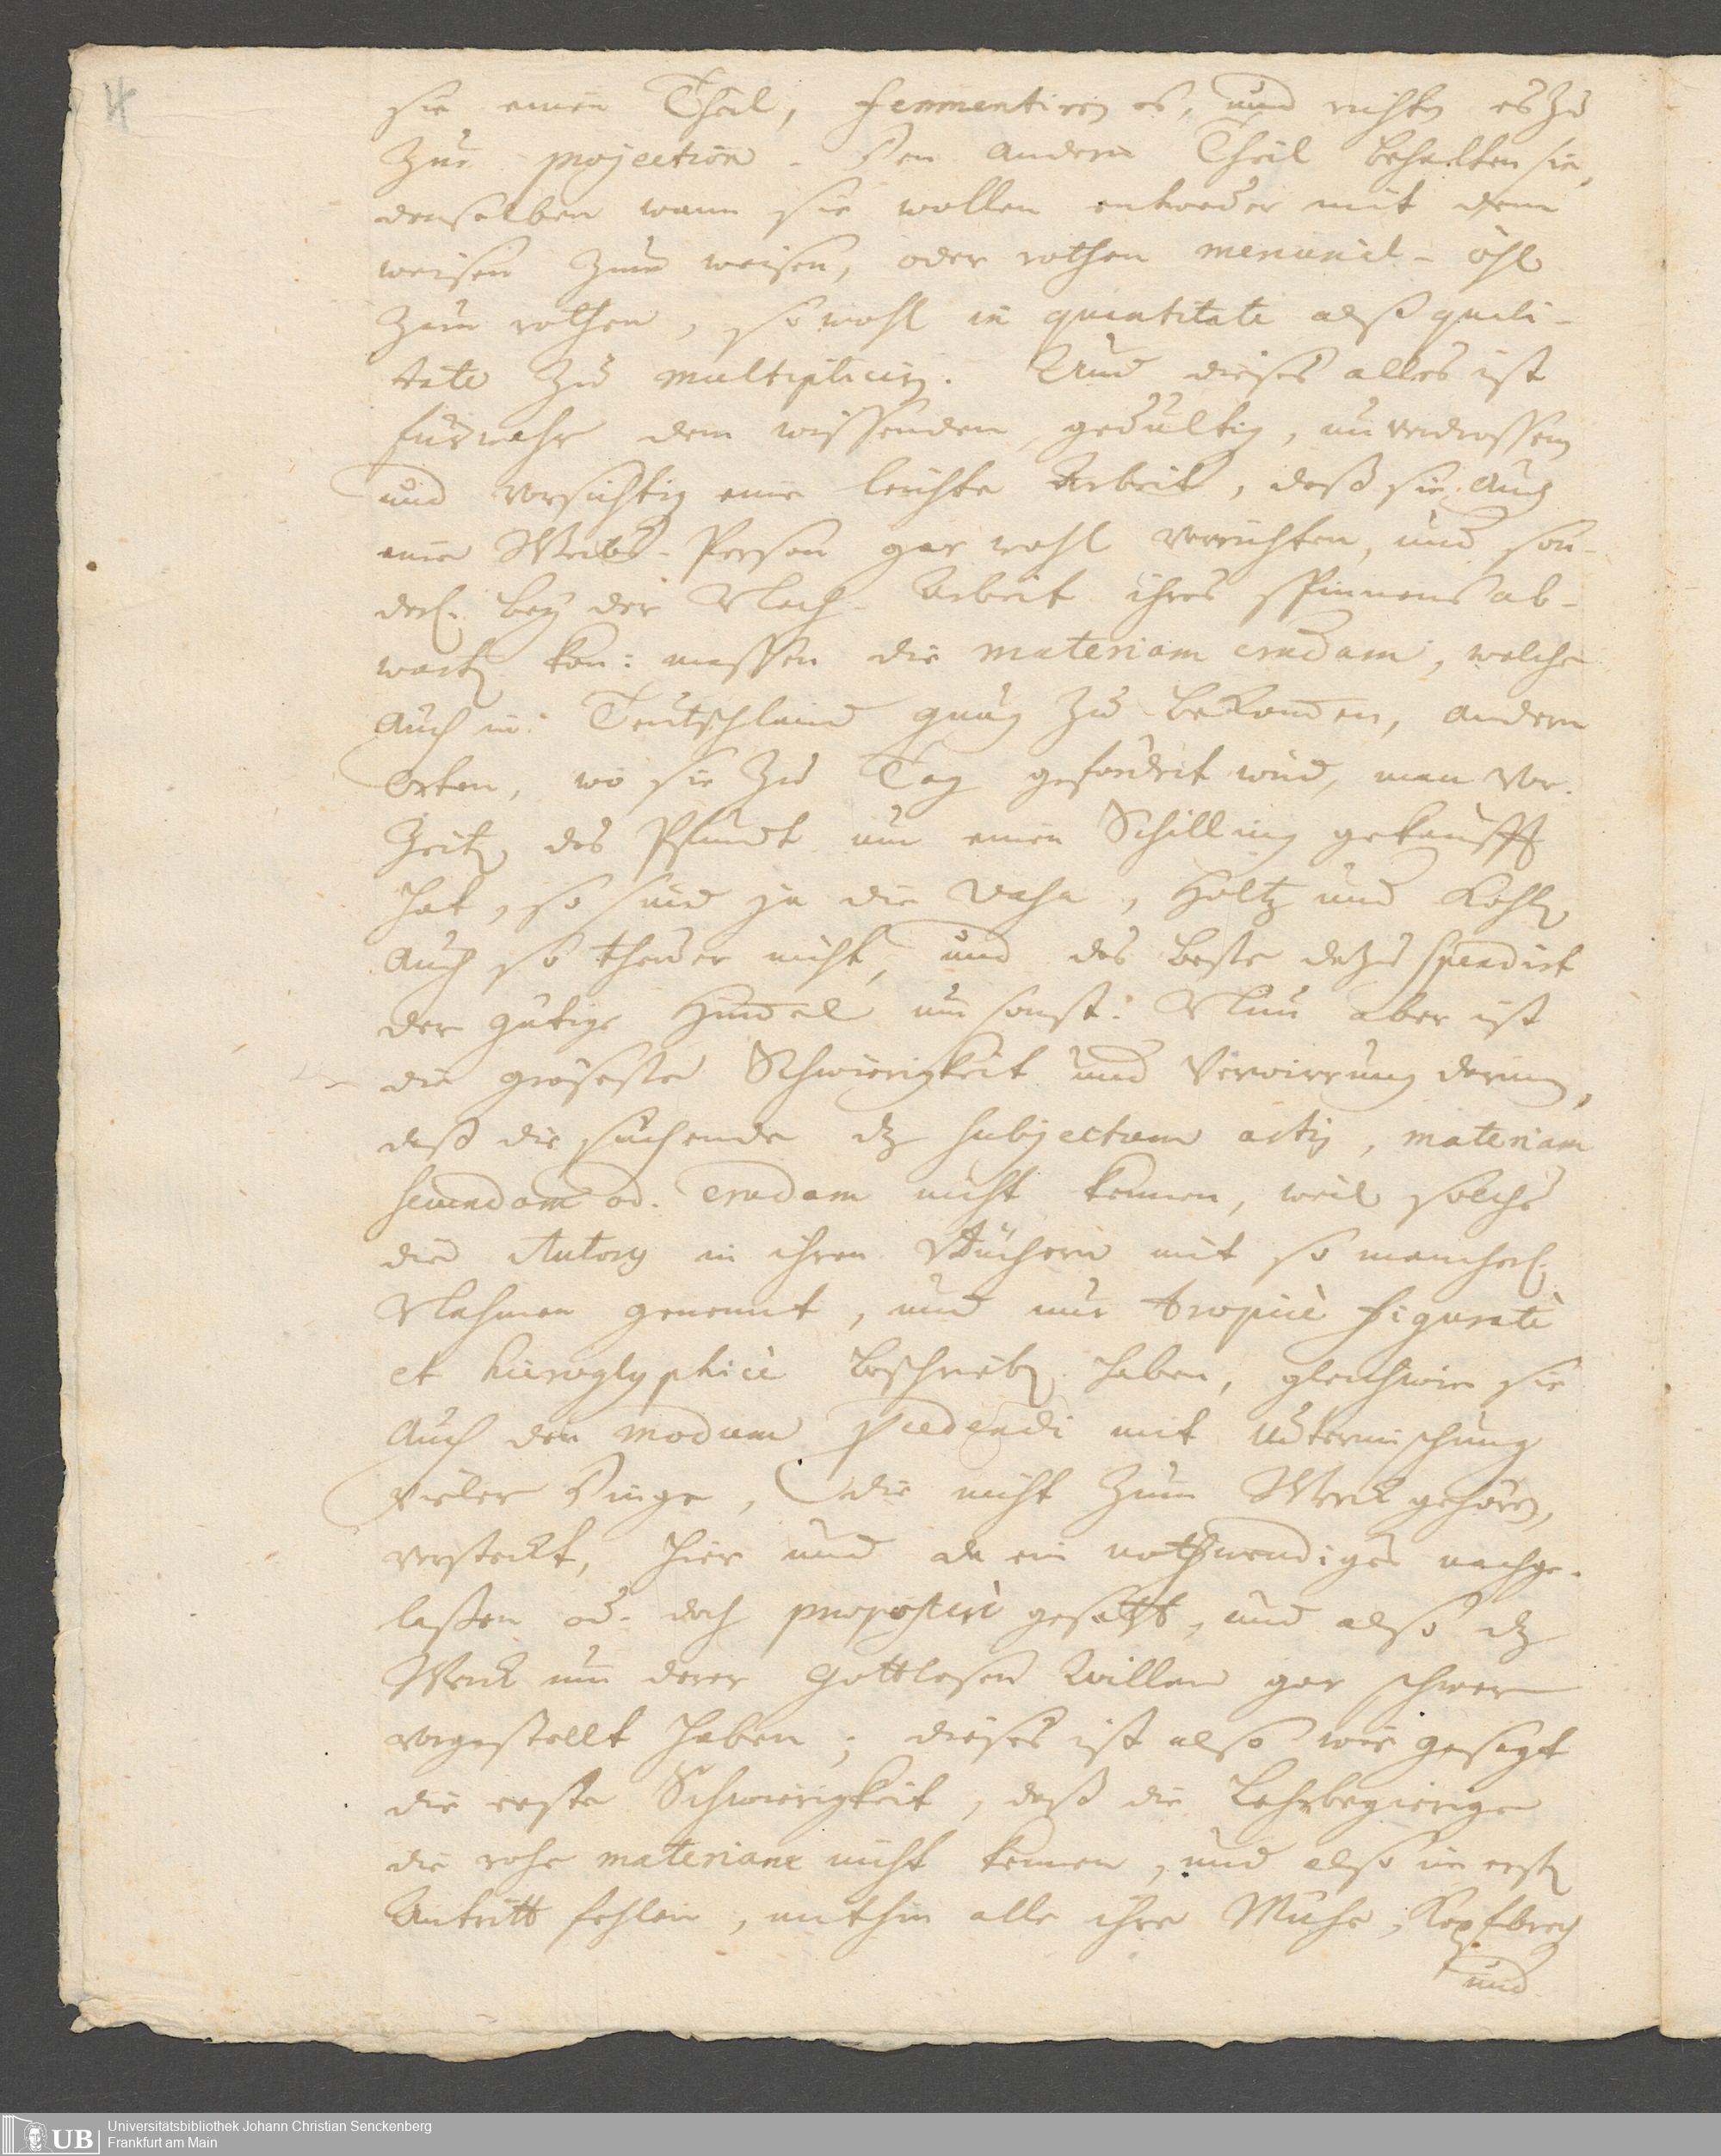 4
sie einen Theil, fermentiren es, und richten es zu
zur projection. Den andern Theil behalten sie,
denselben wann sie wollen entweder mit dem
weisen zum weisen, oder rothen mercurial-öhl
zum rothen, so wohl in quantitate alß quali-
tate zu multipliciren. Und dieses alles ist
fürwahr dem wissenden, gedultig, unverdrossenen
und vorsichtig eine leichte Arbeit, daß sie auch
eine Weibs-Person gar wohl verrichten, und son-
derl. bey der Nach-Arbeit ihres spinnens ab-
warten kan: massen die materiam crudam, welche
auch in Teutschland gnug zu bekommen, andern
Orten, wo sie zu Tag gefördert wird, man vor
Zeiten das Pfundt um einen Schilling gekaufft
hat, so sind ja die Vasa, Holtz und Kohlen
auch so theuer nicht, und das beste dazu spendirt
der gütige Himmel umsonst: Nun aber ist
die gröseste Schwierigkeit und Verwirrung darinn,
daß die suchende dz subjectum artis, materiam
secundam od. crudam nicht kennen, weil solches
die Autores in ihren Büchern mit so mancherl.
Nahmen genennt, und nur tropicè figuratè
et hieroglyphicè beschrieben haben, gleichwie sie
auch den modum procedendi mit Untermischung
vieler Dinge, die nicht zum Werck gehören,
versteckt, hier und da ein nothwendiges nachge-
lassen od. doch praeposterè gesetzt, und also dz
Werck um derer Gottlosen Willen gar schwer
vorgestellt haben; dieses ist also wie gesagt
die erste Schwierigkeit, daß die Lehrbegierige
die rohe materiam nicht kennen, und also im ersten
Antritt fehlen, mithin alle ihre Mühe, Kopfbrechen
und
UB
Universitätsbibliothek Johann Christian Senckenberg
Frankfurt am Main